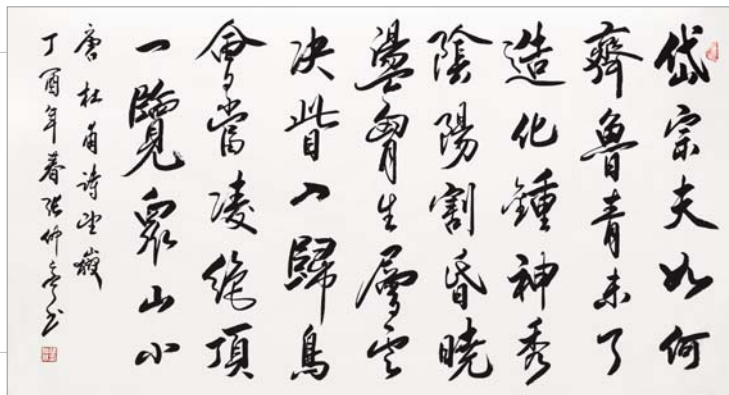 岱宗夫如何
齊魯青未了
造化鍾神秀
陰陽割昏曉
盪胷生層雲
决眥入歸鳥
會當凌絕頂
一覽眾山小
唐杜甫詩望嶽
丁酉年春張仲亭書